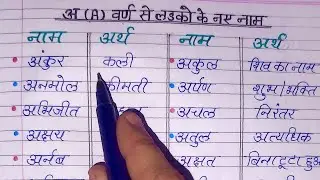 अ (A) वर्ण से लडको के नए नाम
नाम अर्थ नाम अर्थ
अंकुर कली अकुल शिव का नाम
अनमोल कीमती अर्पण शुभ/भक्ति
अभिजीत अचल निरंतर
अक्षय अतुल अत्यधिक
अर्नब अक्षत बिना टूटा हुआ